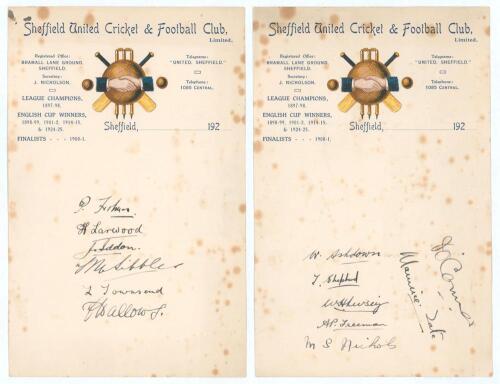 Sheffield United Cricket & Football Club,
Limited.
Registered Office:
BRAMALL LANE GROUND,
SHEFFIELD.
Secretary:
J. NICHOLSON.
LEAGUE CHAMPIONS,
1897-98.
ENGLISH CUP WINNERS,
1898-99, 1901-2, 1914-15,
& 1924-25.
FINALISTS - - - 1900-1.
Telegrams:
"UNITED, SHEFFIELD."
Telephone:
1085 CENTRAL.
Sheffield, 192
P. Fisher
H Larwood
J. Iddon.
M Sibbles
L Townsend
Sheffield United Cricket & Football Club,
Limited.
Registered Office:
BRAMALL LANE GROUND,
SHEFFIELD.
Secretary:
J. NICHOLSON.
LEAGUE CHAMPIONS,
1897-98.
ENGLISH CUP WINNERS,
1898-99, 1901-2, 1914-15,
& 1924-25.
FINALISTS - - - 1900-1.
Telegrams:
"UNITED, SHEFFIELD."
Telephone:
1085 CENTRAL.
Sheffield, 192
W. Ashdown
A.P. Freeman
M S Nichols
Maurice Tate
J O'Connor